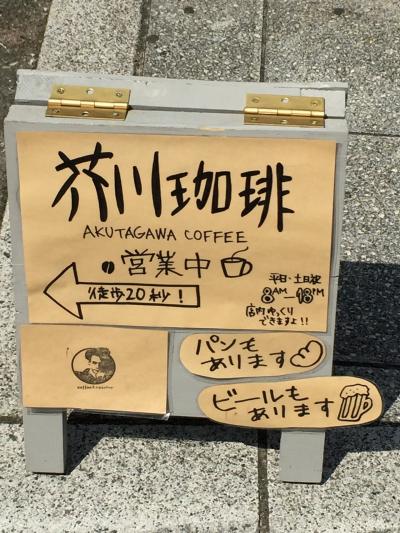 芥川珈琲
AKUTAGAWA COFFEE
営業中
徒歩20秒!
平日・土日祝
8AM―18PM
店内ゆっくり
できますよ!!
パンも
あります
ビールも
あります